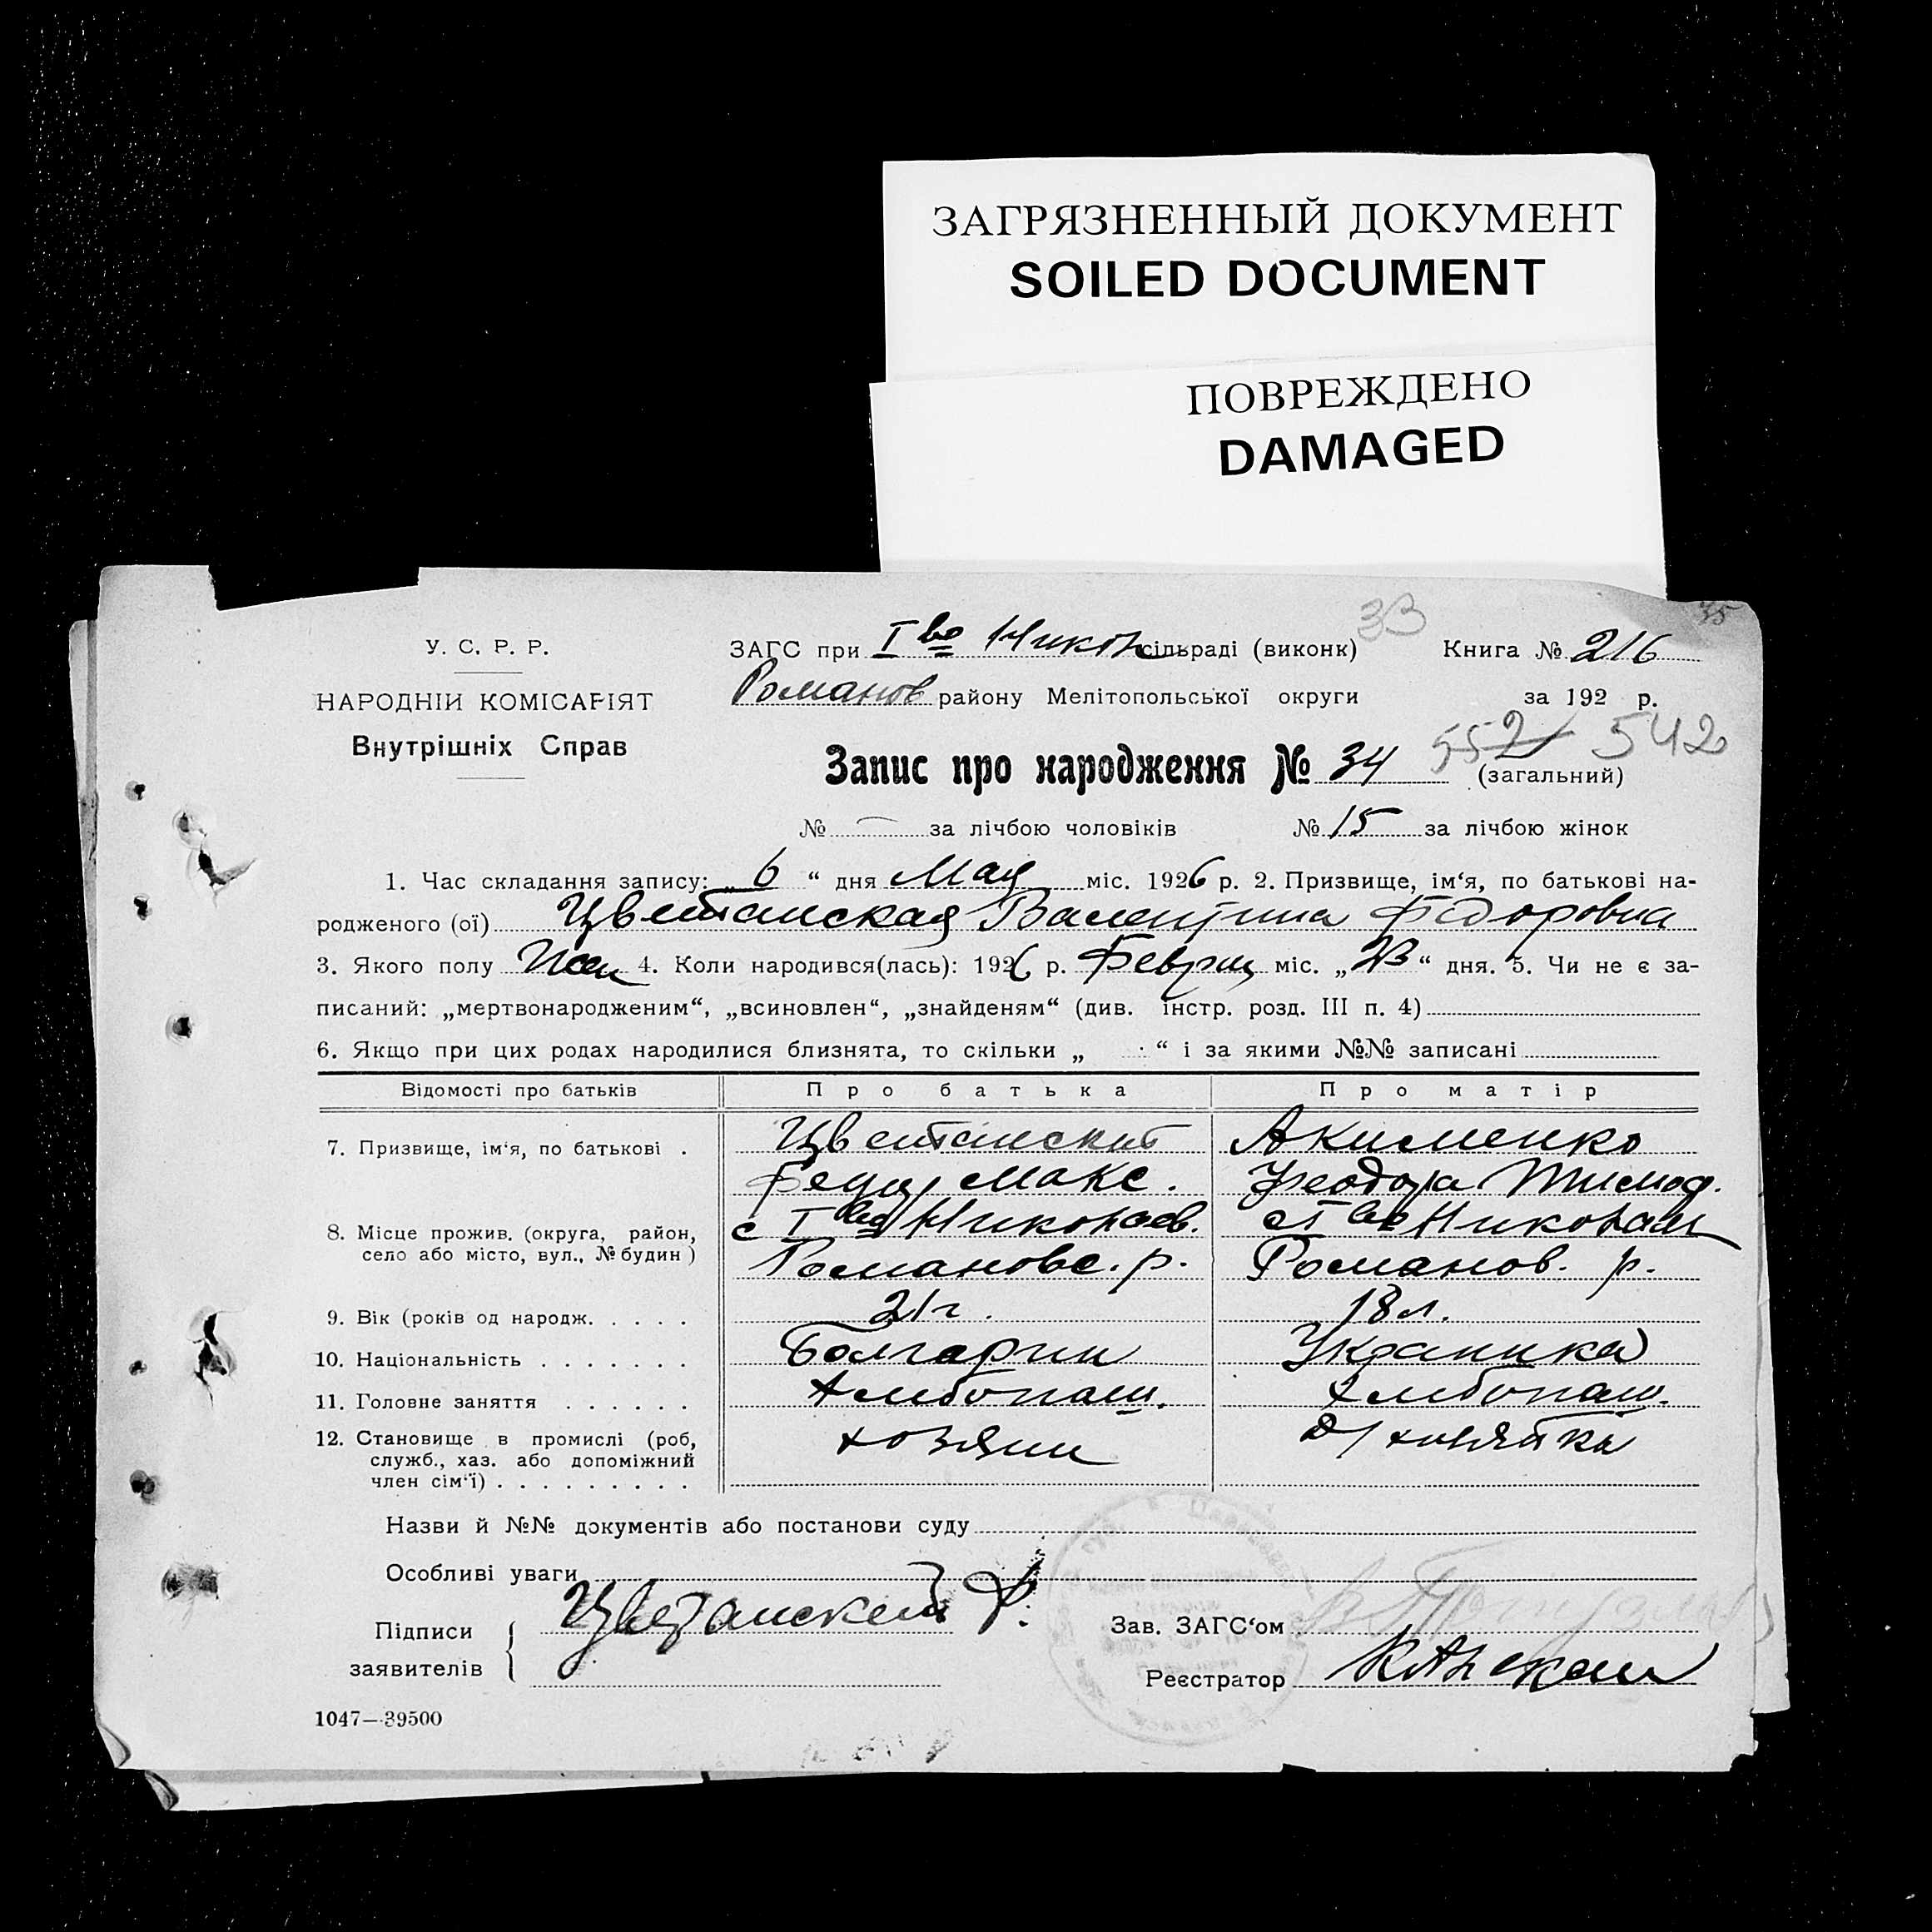 ЗАГРЯЗНЕННЫЙ ДОКУМЕНТ
SOILED DOCUMENT
ПОВРЕЖДЕНО
DAMAGED
33
35
У. С. Р. Р.
НАРОДНІЙ КОМІСАРІЯТ
Внутрішніх Справ
ЗАГС при Iво Никол сільраді (виконк) Книга № 216
Романов району Мелітопольської округи за 192 р.
552 542
Запис про народження № 34 (загальний)
№ — за лічбою чоловіків № 15 за лічбою жінок
1. Час складання запису: „ 6 “ дня Мая міс. 1926 р. 2. Призвище, ім‘я, по батькові на-
родженого (ої) Цветанская Валентина Федоровна
3. Якого полу Жен 4. Коли народився(лась): 1926 р. Феврал міс. „ 23 “ дня. 5. Чи не є за-
писаний: „мертвонародженим“, „всиновлен“, „знайденям“ (див. інстр. розд. III п. 4)
6. Якщо при цих родах народилися близнята, то скільки „ “ і за якими №№ записані
Відомості про батьків Про батька Про матір
7. Призвище, ім‘я, по батькові . Цветанский Акименко
Федор Макс. Феодора Тимоф.
8. Місце прожив. (округа, район, с Iво Николаев. с Iво Николаев
село або місто, вул., № будин) Романовс. р. Романов. р.
9. Вік (років од народж. . . . . 21 г. 18 л.
10. Національність . . . . . . . Болгарин Украинка
11. Головне заняття . . . . . . Хлебопаш. Хлебопаш.
12. Становище в промислі (роб, хозяин д/хозяйка
служб., хаз. або допоміжний
член сім‘ї) . . . . . . . . .
Назви й №№ документів або постанови суду
Особливі уваги
Підписи
заявителів
Цветанский Ф.
Зав. ЗАГС‘ом
Реєстратор
1047—39500